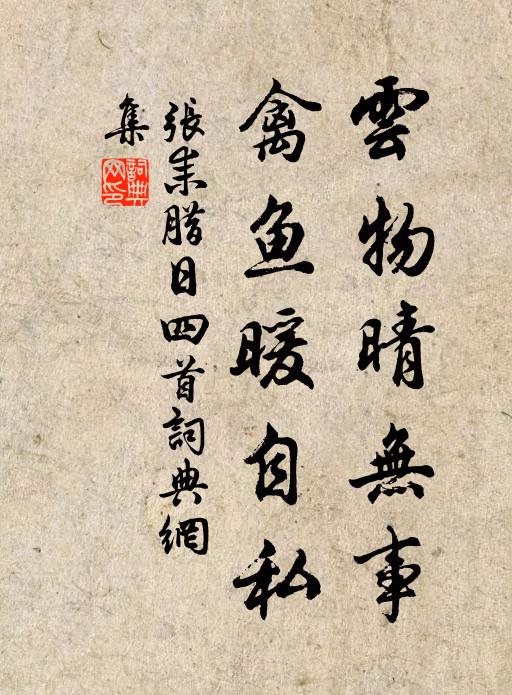 雲物晴無事
禽魚暖自私
張耒腊日四首詞典網
集
詞典
网印